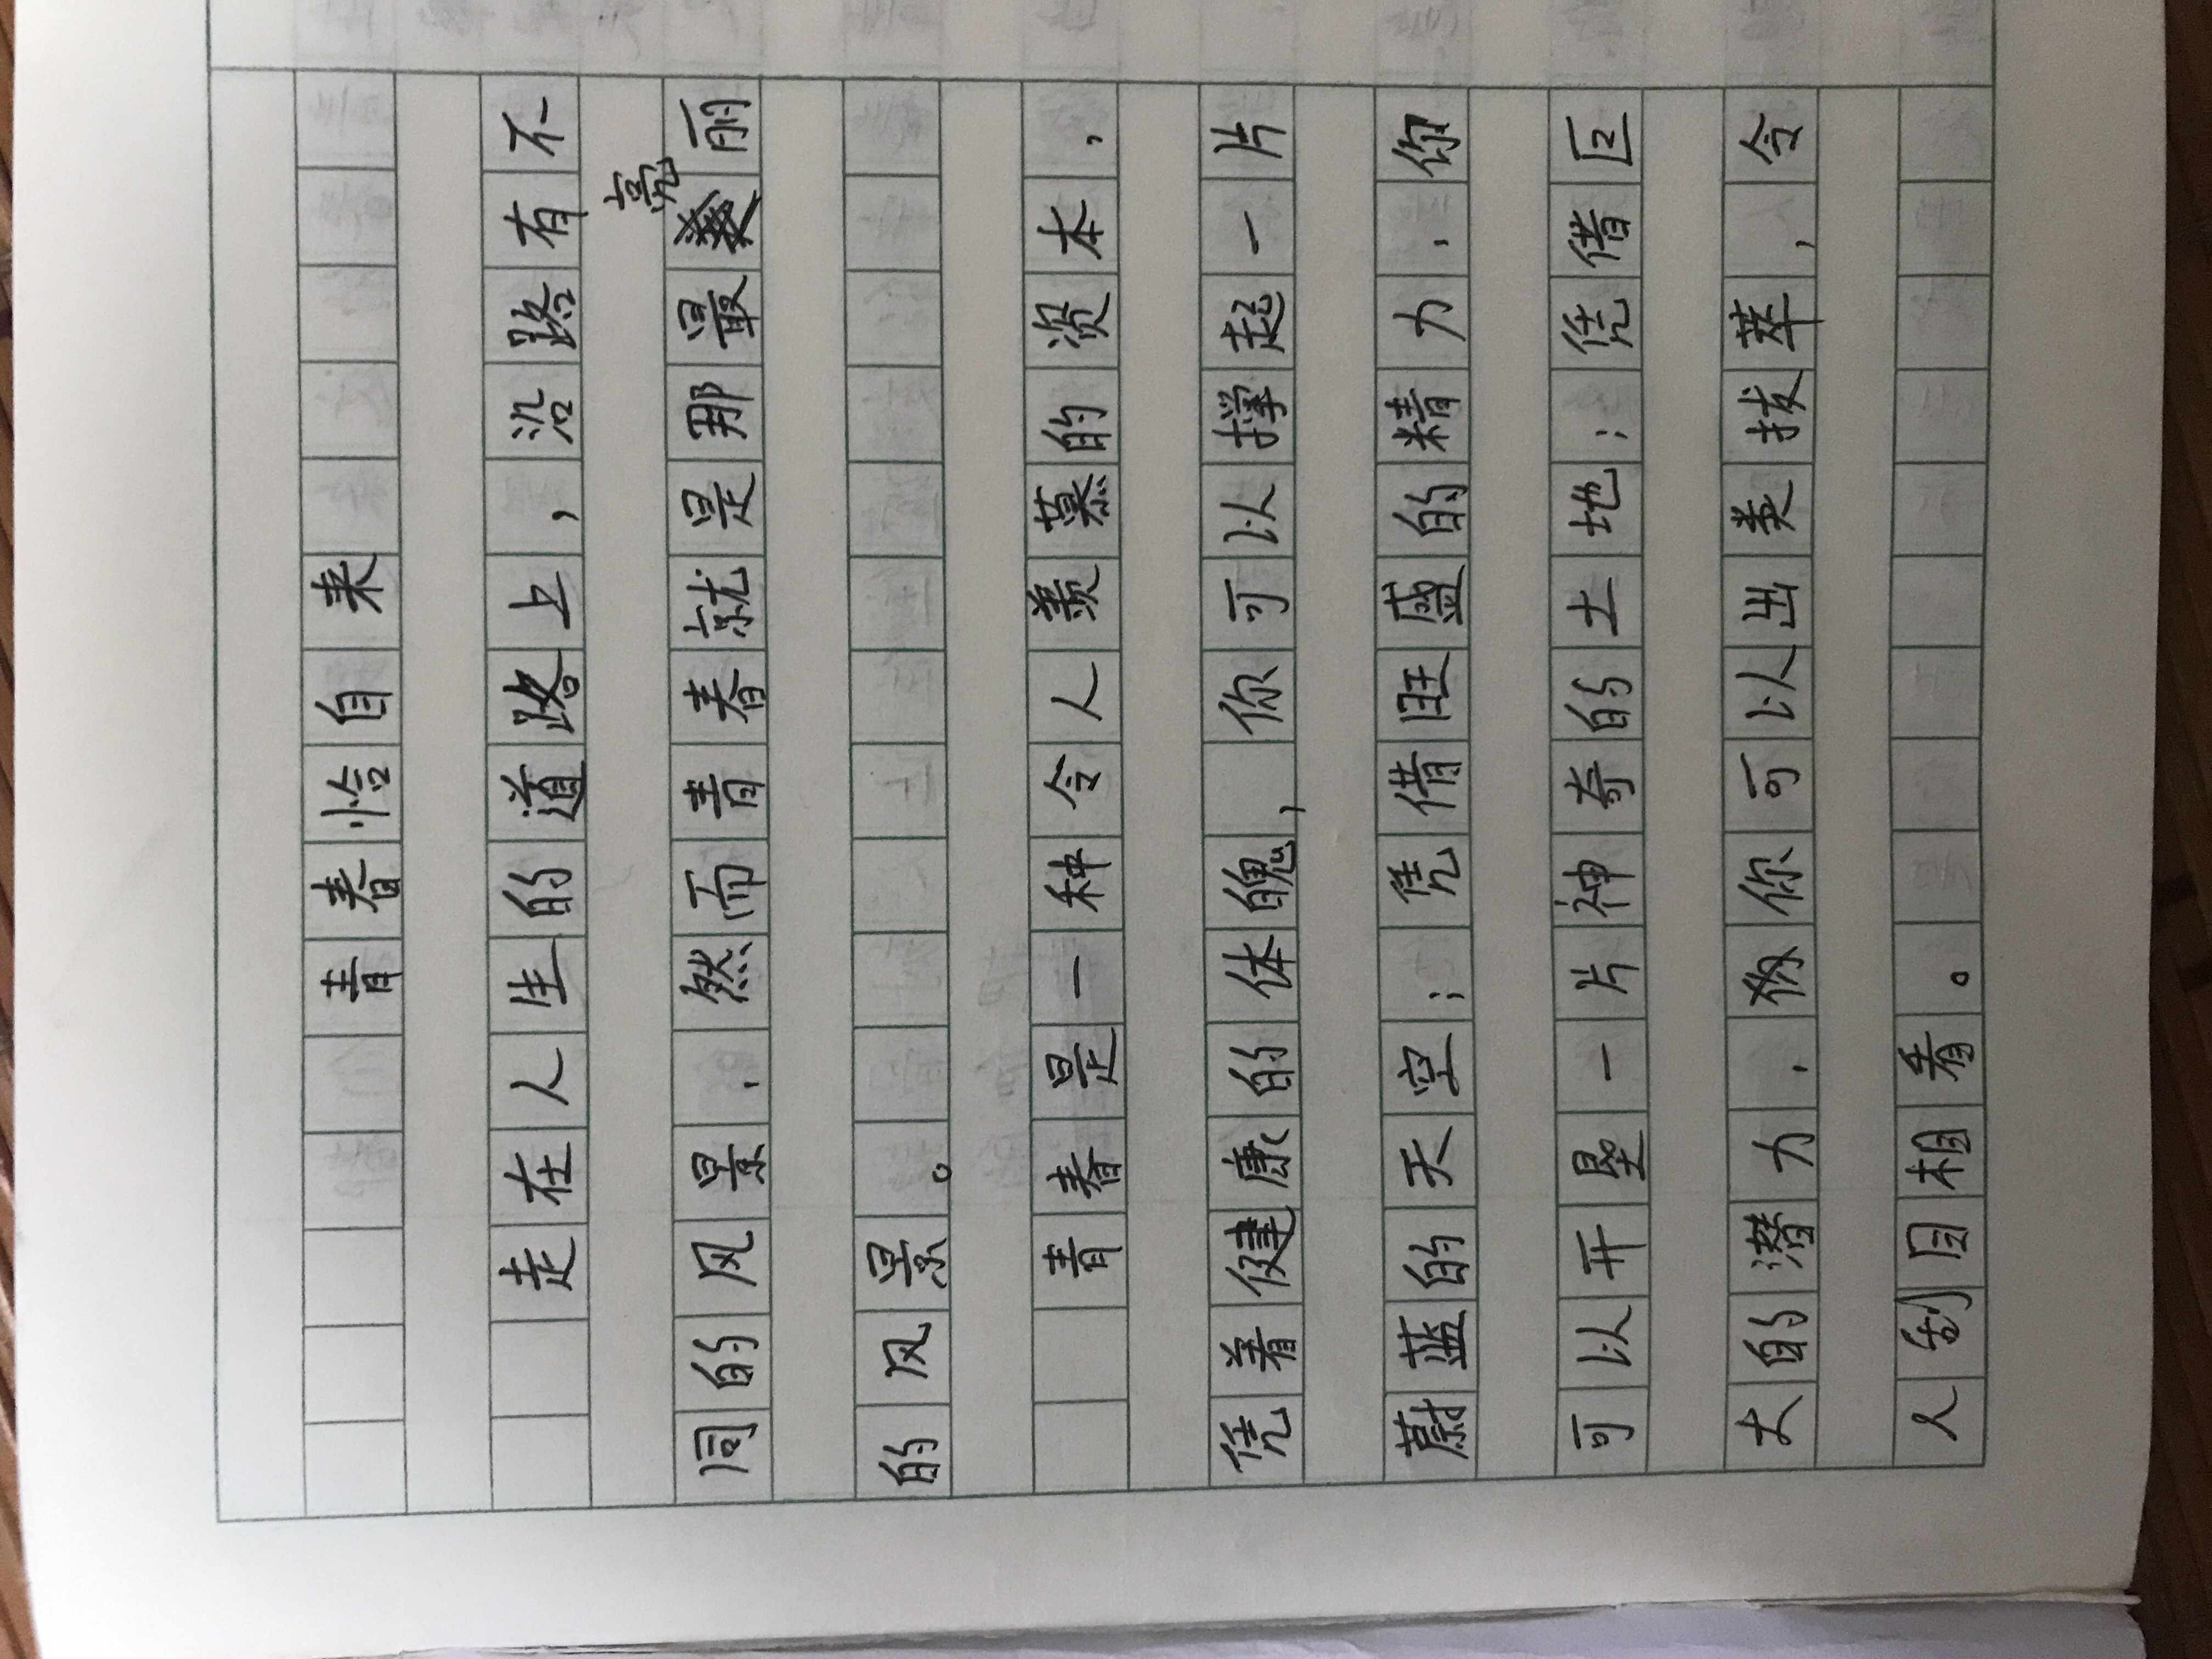 青春恰自来
走在人生的道路上，沿路有不
同的风景，然而青春就是那最亮丽
的风景。
青春是一种令人羡慕的资本，
凭着健康的体魄，你可以撑起一片
蔚蓝的天空；凭借旺盛的精力，你
可以开垦一片神奇的土地；凭借巨
大的潜力，你可以出类拔萃，令
人刮目相看。